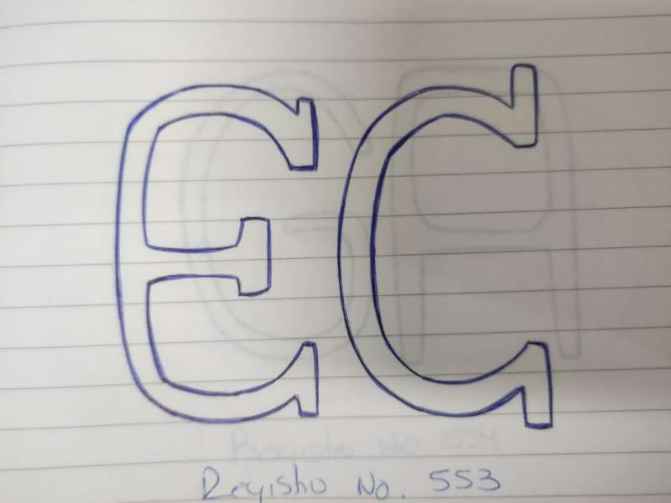 ЄC
Registro No. 553